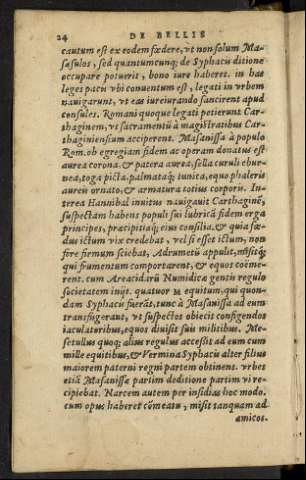 24 DE BELLIS
cautum est ex eodem fœdere, vt non solum Ma-
sæsulos, sed quantumcunq; de Syphacis ditione
occupare potuerit, bono iure haberet. in has
leges pacis vbi conuentum est, legati in vrbem
nauigarunt, vt eas iureiurando sancirent apud
consules. Romani quoque legati petierunt Car-
thaginem, vt sacramentū à magistratibus Car-
thaginiensium acciperent. Masanissa à populo
Rom. ob egregiam fidem ac operam donatus est
aurea corona, & patera aurea, sella curuli ebur-
nea, toga picta, palmataq; tunica, equo phaleris
aureis ornato, & armatura totius corporis. In-
terea Hannibal inuitus nauigauit Carthaginē,
suspectam habens populi sui lubricā fidem erga
principes, præcipitiāq; eius consilia, & quia fœ-
dus ictum vix credebat, vel si esset ictum, non
fore firmum sciebat, Adrumetū appulit, misitq;
qui frumentum comportarent, & equos coëme-
rent. cum Areacidarū Numidicæ gentis regulo
societatem inijt. quatuor M equitum, qui quon-
dam Syphacis fuerāt, tunc à Masanissa ad eum
transfugerant, vt suspectos obiecit configendos
iaculatoribus, equos diuisit suis militibus. Me-
setullus quoq; alius regulus accessit ad eum cum
mille equitibus, & Vermina Syphacis alter filius
maiorem paterni regni partem obtinens. vrbes
etiā Masanissæ partim deditione partim vi re-
cipiebat. Narcem autem per insidias hoc modo.
cum opus haberet cōmeatu, misit tanquam ad
amicos,